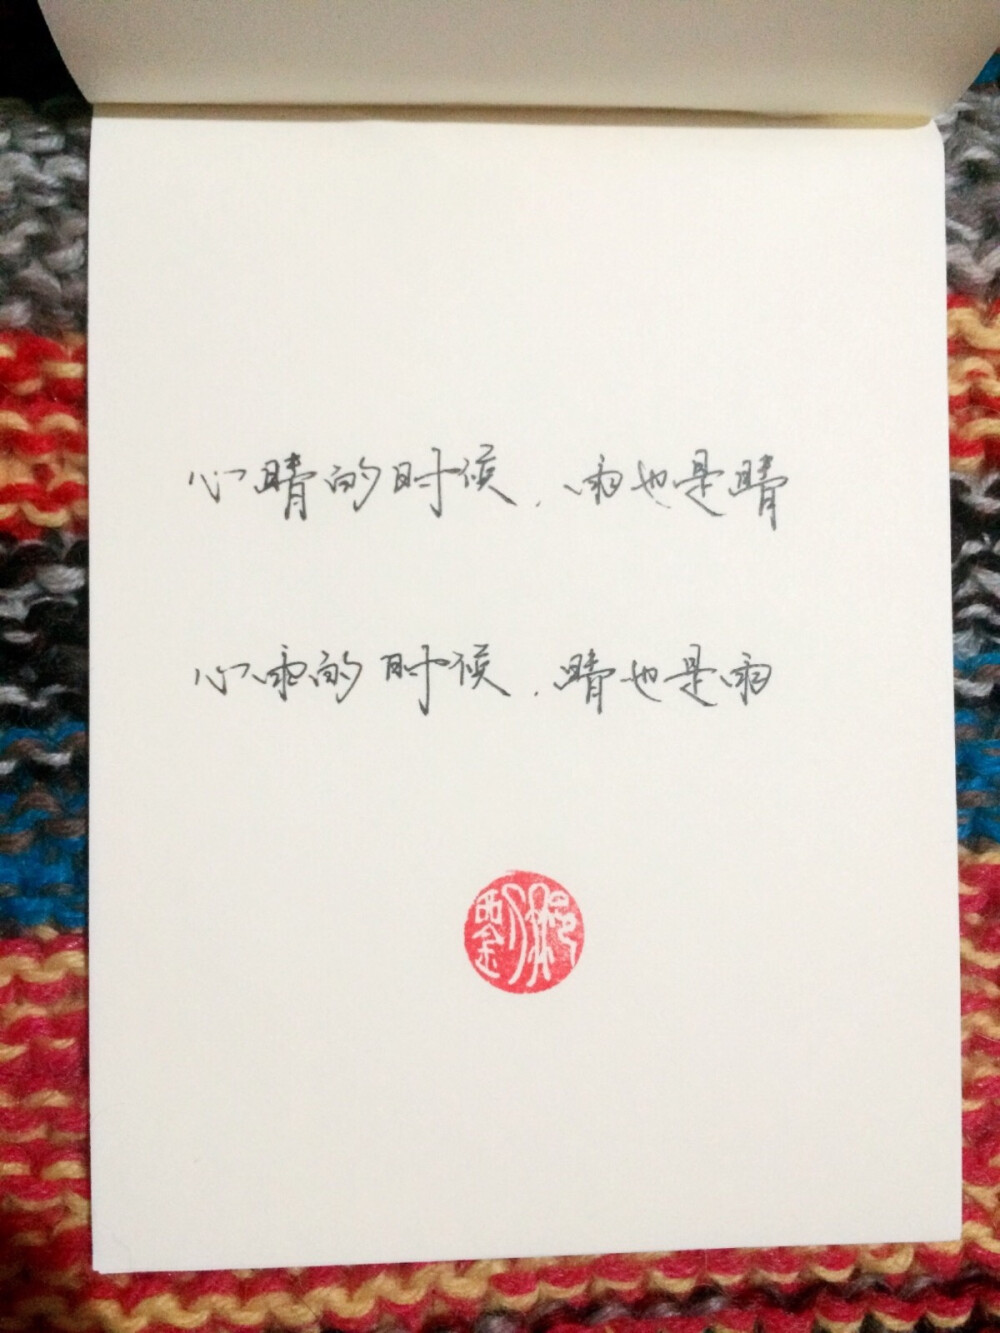 心晴的时候，雨也是晴
心雨的时候，晴也是雨